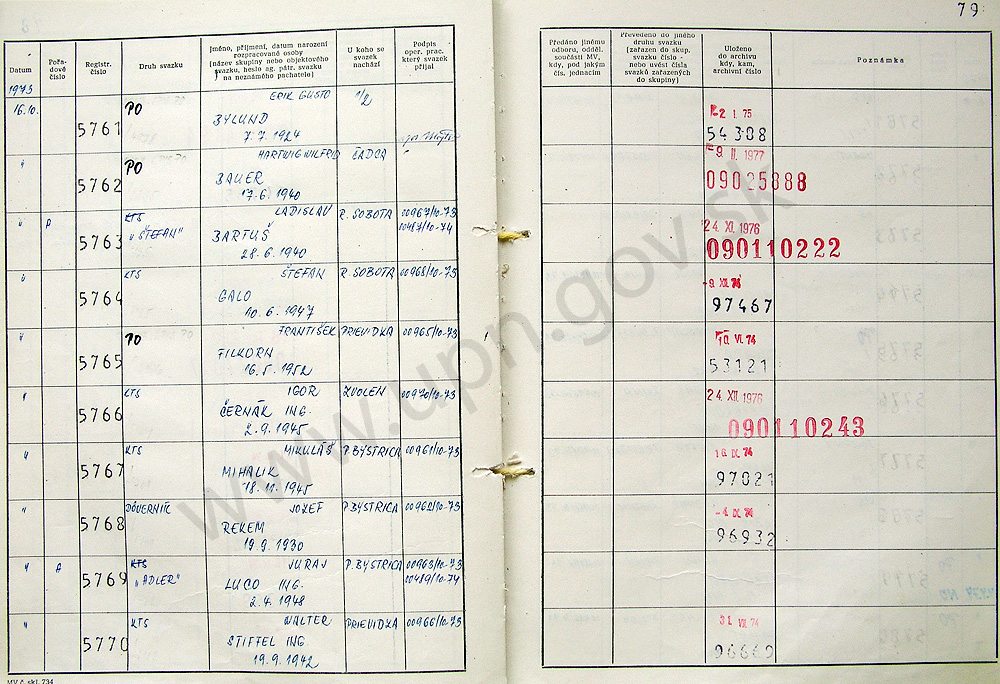 79
Datum
Pořadové číslo
Registr. číslo
Druh svazku
Jméno, příjmení, datum narození
rozpracované osoby
(název skupiny nebo objektového
svazku, heslo ag. pátr. svazku
na neznámého pachatele)
U koho se
svazek
nachází
Podpis
oper. prac.
který svazek
přijal
Předáno jinému
odboru, odděl.
součásti MV,
kdy, pod jakým
čís. jednacím
Převedeno do jiného
druhu svazku
(zařazen do skup.
svazku číslo -
nebo uvést čísla
svazků zařazených
do skupiny)
Uloženo
do archivu
kdy, kam,
archivní číslo
Poznámka
1973
16.10. 5761 PO ERIK GUSTO 1/2
BYLUND
7.7. 1924
2 1. 75
54308
" 5762 PO HARTWIG WILFRID ČADCA
BAUER
17.6. 1940
9. II. 1977
09025888
" A 5763 KTS LADISLAV R. SOBOTA 00967/10-73
"ŠTEFAN" BARTUŠ 00487/10-74
28.6. 1940
24. XI. 1976
090110222
" 5764 KTS ŠTEFAN R. SOBOTA 00968/10-73
GALO
10.6. 1947
-9. XII. 74
97467
" 5765 PO FRANTIŠEK PRIEVIDZA 00965/10-73
FILKORN
16.5. 1952
10. VI. 74
53121
" 5766 KTS IGOR ZVOLEN 00970/10-73
ČERNÁK ING.
2.9. 1945
24. XII. 1976
090110243
" 5767 KTS MIKULÁŠ P. BYSTRICA 00961/10-73
MIHALIK
18.11. 1945
16. IX. 74
97021
" 5768 DÔVERNÍK JOZEF P. BYSTRICA 00962/10-73
REKEM
19.9. 1930
-4. IX. 74
96932
" A 5769 KTS JURAJ P. BYSTRICA 00963/10-73
"ADLER" LUCO ING. 00489/10-74
2.4. 1948
" 5770 KTS WALTER PRIEVIDZA 00966/10-73
STIFFEL ING
19.9. 1942
31. VII. 74
96660
MV č. skl. 734
www.upn.gov.sk